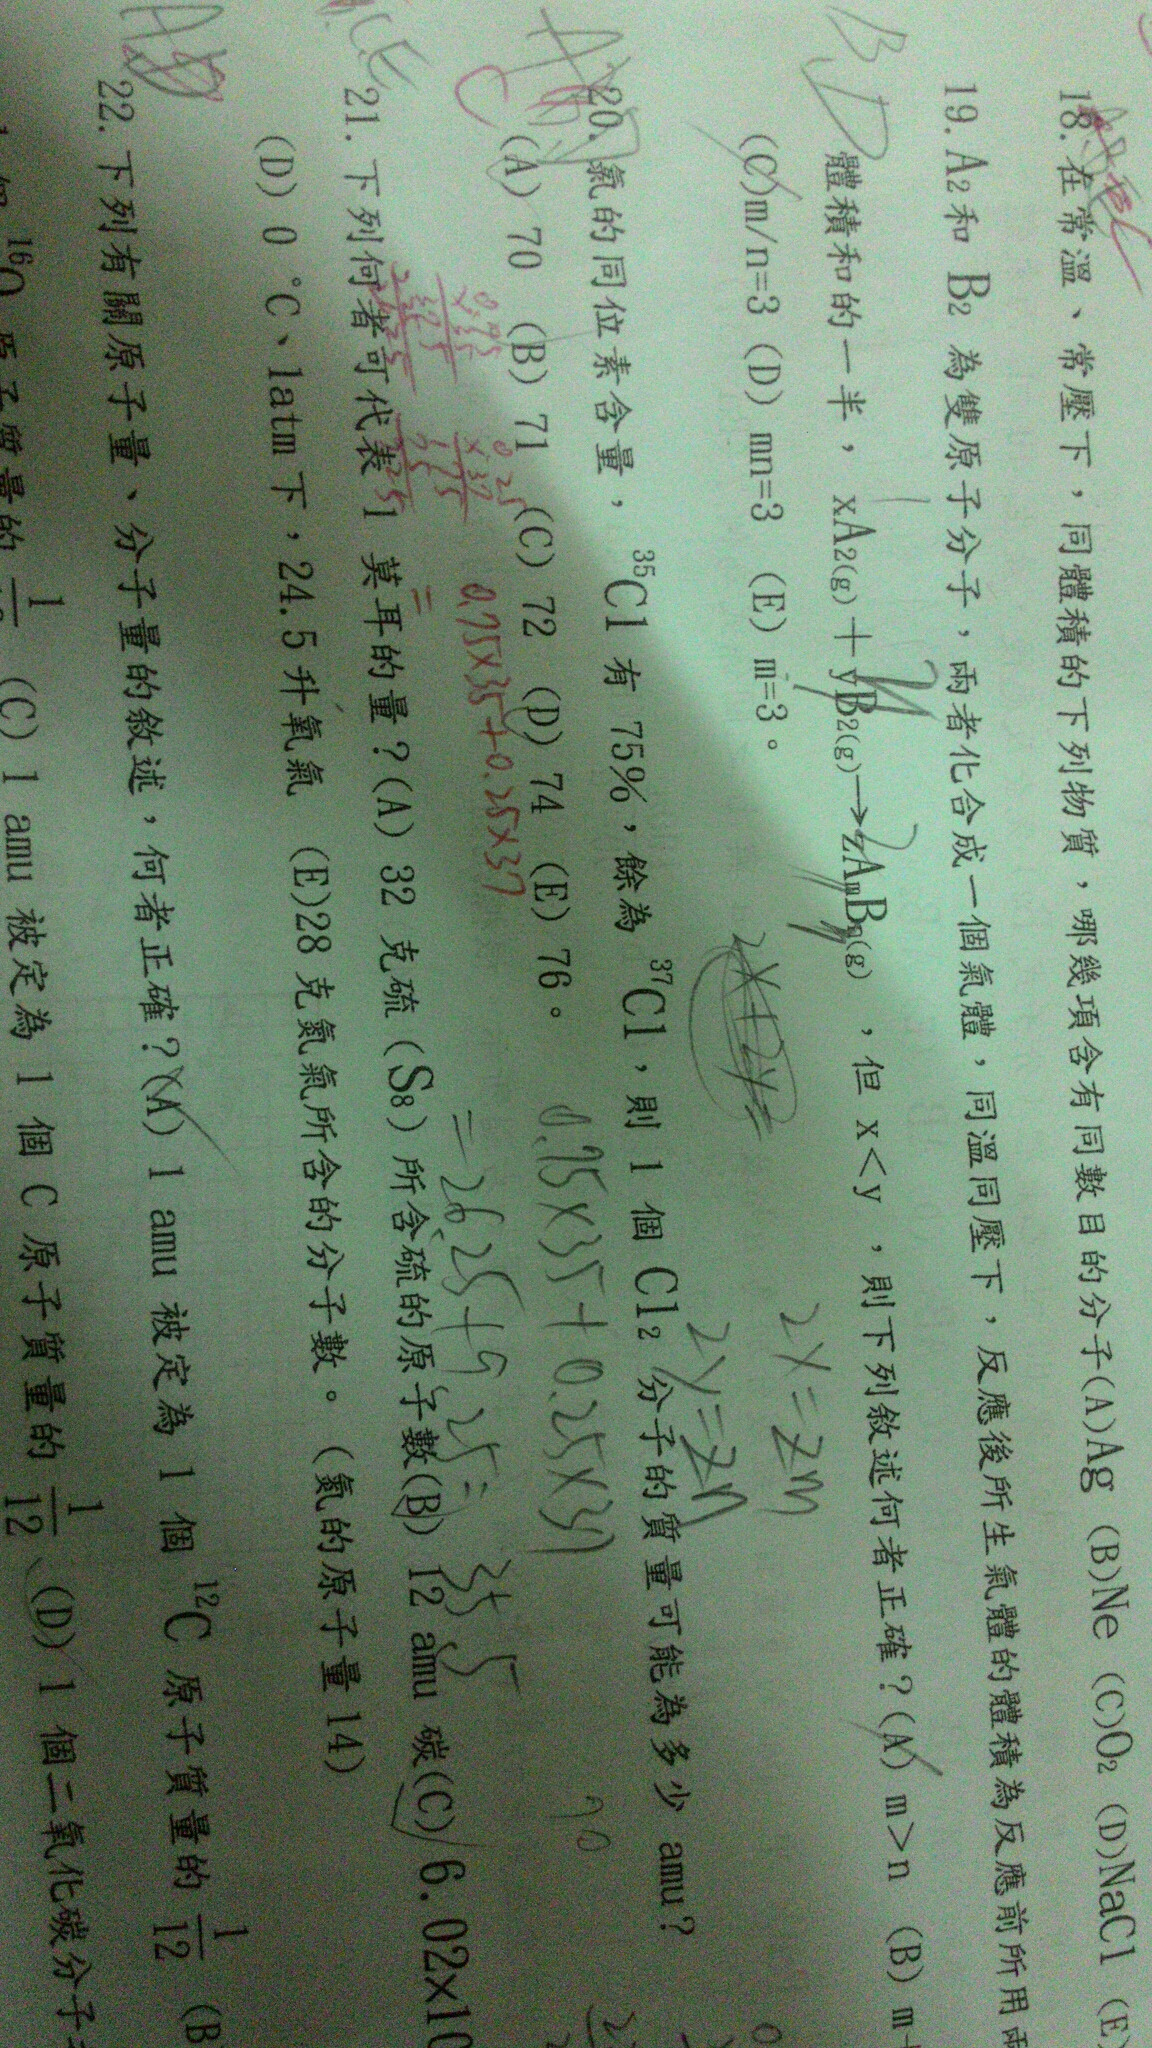 18.在常溫、常壓下，同體積的下列物質，哪幾項含有同數目的分子(A)Ag (B)Ne (C)O₂ (D)NaCl (E)
19.A₂和 B₂ 為雙原子分子，兩者化合成一個氣體，同溫同壓下，反應後所生氣體的體積為反應前所用兩
體積和的一半，xA₂(g)＋yB₂(g)→zAmBn(g)，但 x＜y ，則下列敘述何者正確？(A) m＞n (B) m+
(C)m/n=3 (D) mn=3 (E) m=3。
BD
2x=zm
2y=zn
2x+2y=
20. 氯的同位素含量，³⁵Cl 有 75%，餘為 ³⁷Cl，則 1 個 Cl₂ 分子的質量可能為多少 amu？
(A) 70 (B) 71 (C) 72 (D) 74 (E) 76。
0.75×35+0.25×37
=0.75×35+0.25×37
=26.25+9.25=35.5
70
C
21.下列何者可代表 1 莫耳的量？(A) 32 克硫（S₈）所含硫的原子數(B) 12 amu 碳(C) 6.02×10
(D) 0 ℃、1atm下，24.5升氧氣 (E)28 克氮氣所含的分子數。（氮的原子量 14）
CE
22.下列有關原子量、分子量的敘述，何者正確？(A) 1 amu 被定為 1 個 ¹²C 原子質量的 1/12 (B
¹⁶O 原子質量的 (C) 1 amu 被定為 1 個 C 原子質量的 1/12 (D) 1 個二氧化碳分子